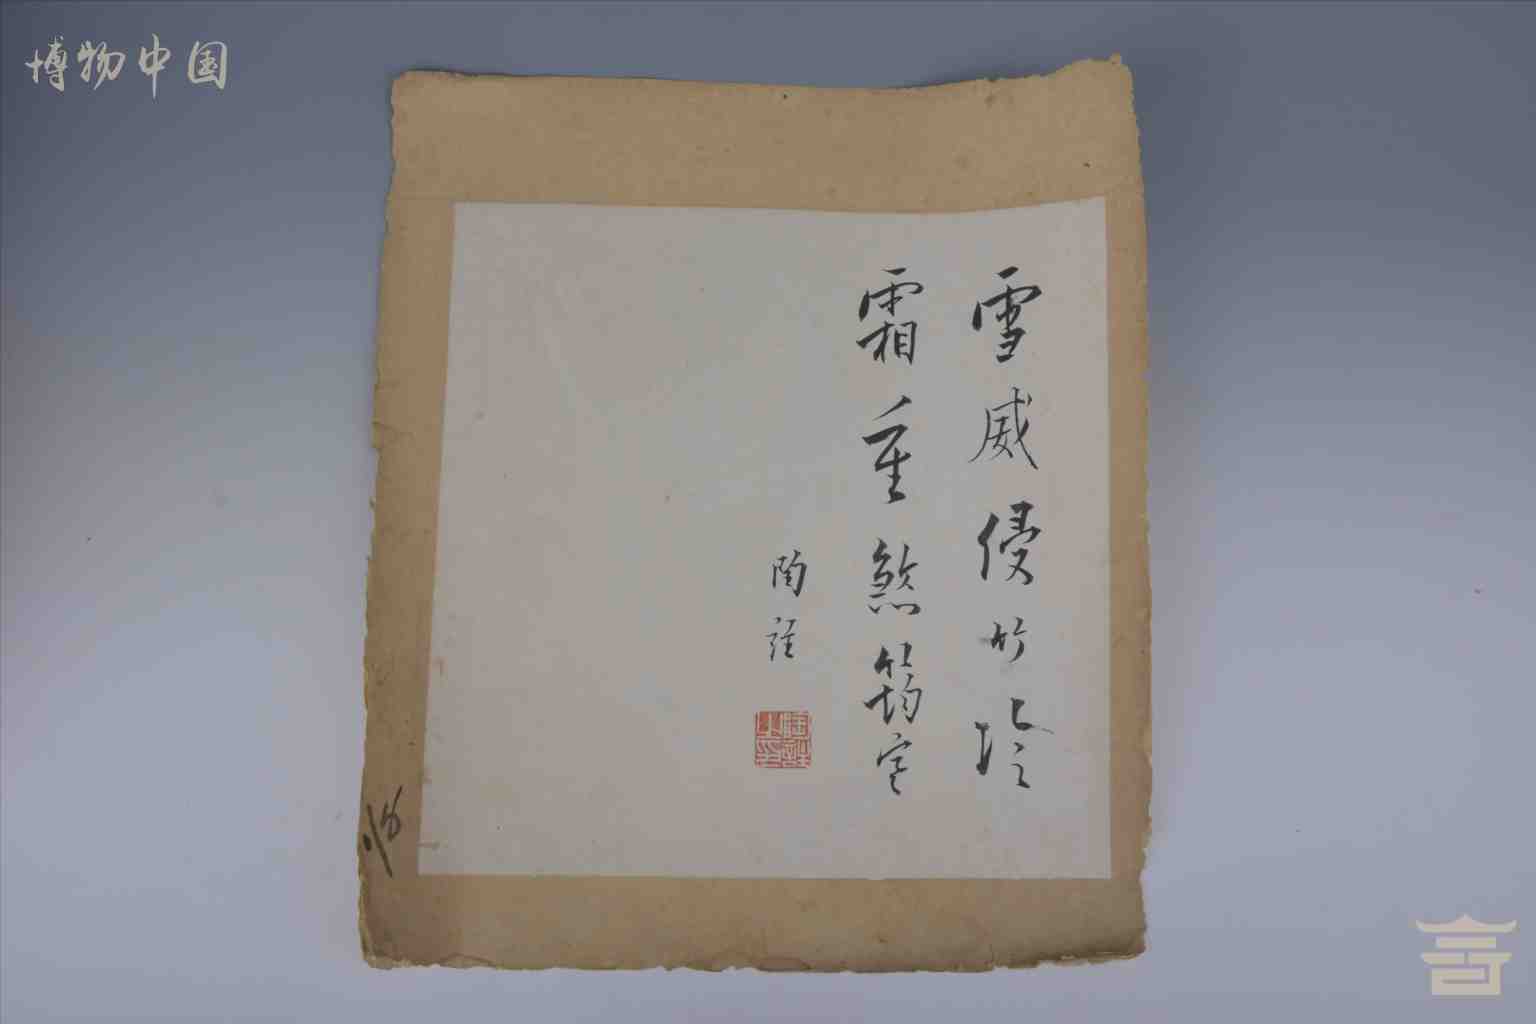 博物中国
雪威侵竹冷
霜重煞筠寒
陶